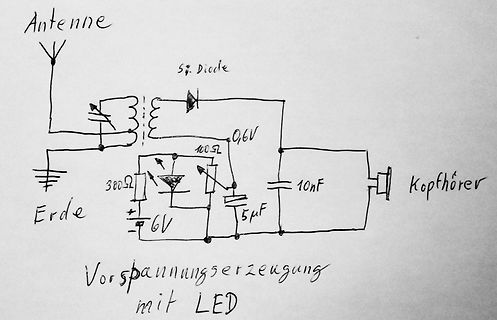 Antenne
Si. Diode
0,6V
100Ω
300Ω
10nF
Kopfhörer
+
6V
-
5µF
Erde
Vorspannungserzeugung
mit LED